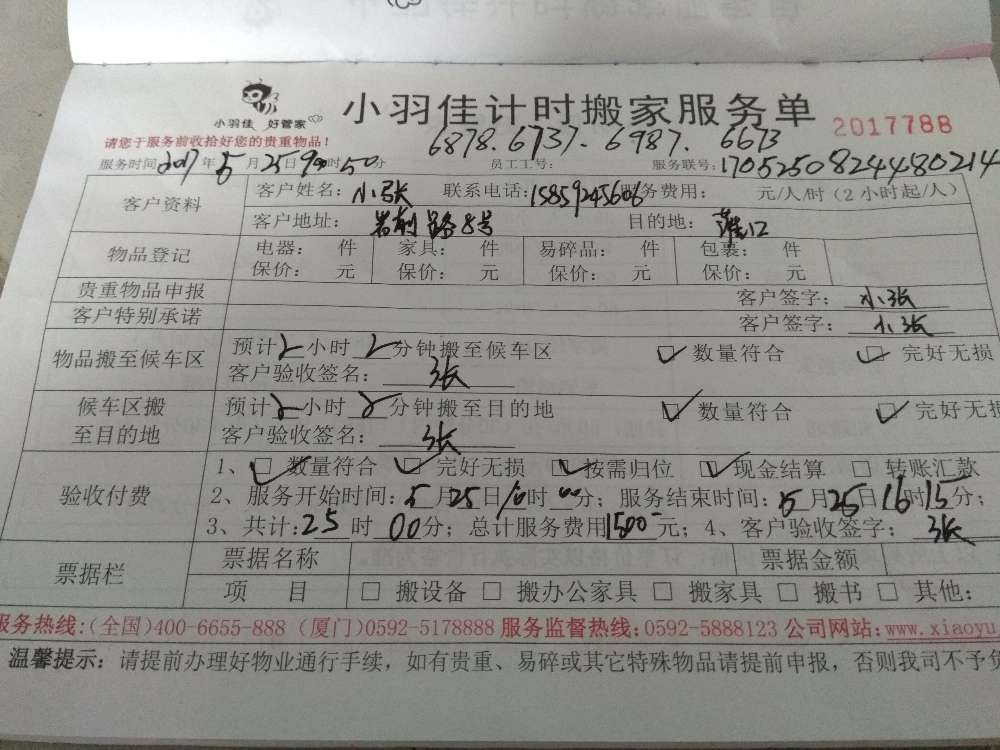 小羽佳 好管家
小羽佳计时搬家服务单
2017788
请您于服务前收拾好您的贵重物品！
6878. 6737. 6987. 6673
服务时间2017年5月25日9时50分 员工工号： 服务联号：1705250824480214
客户资料
客户姓名：小张 联系电话：15859245606 服务费用： 元/人/时（2小时起/人）
客户地址：岩前路8号 目的地：
物品登记
电器： 件 家具： 件 易碎品： 件 包裹： 件
保价： 元 保价： 元 保价： 元 保价： 元
贵重物品申报 客户签字：小张
客户特别承诺 客户签字：小张
物品搬至候车区
预计2小时2分钟搬至候车区 ☑ 数量符合 ☑ 完好无损
客户验收签名：张
候车区搬至目的地
预计2小时2分钟搬至目的地 ☑ 数量符合 ☑ 完好无损
客户验收签名：张
验收付费
1、☑ 数量符合 ☑ 完好无损 ☑ 按需归位 ☑ 现金结算 □ 转账汇款
2、服务开始时间：5月25日10时00分；服务结束时间：5月25日16时15分；
3、共计：25时00分；总计服务费用1500元；4、客户验收签字：张
票据栏
票据名称 票据金额
项 目 □ 搬设备 □ 搬办公家具 □ 搬家具 □ 搬书 □ 其他：
服务热线：(全国)400-6655-888 (厦门)0592-5178888 服务监督热线：0592-5888123 公司网站：www.xiaoyu
温馨提示：请提前办理好物业通行手续，如有贵重、易碎或其它特殊物品请提前申报，否则我司不予